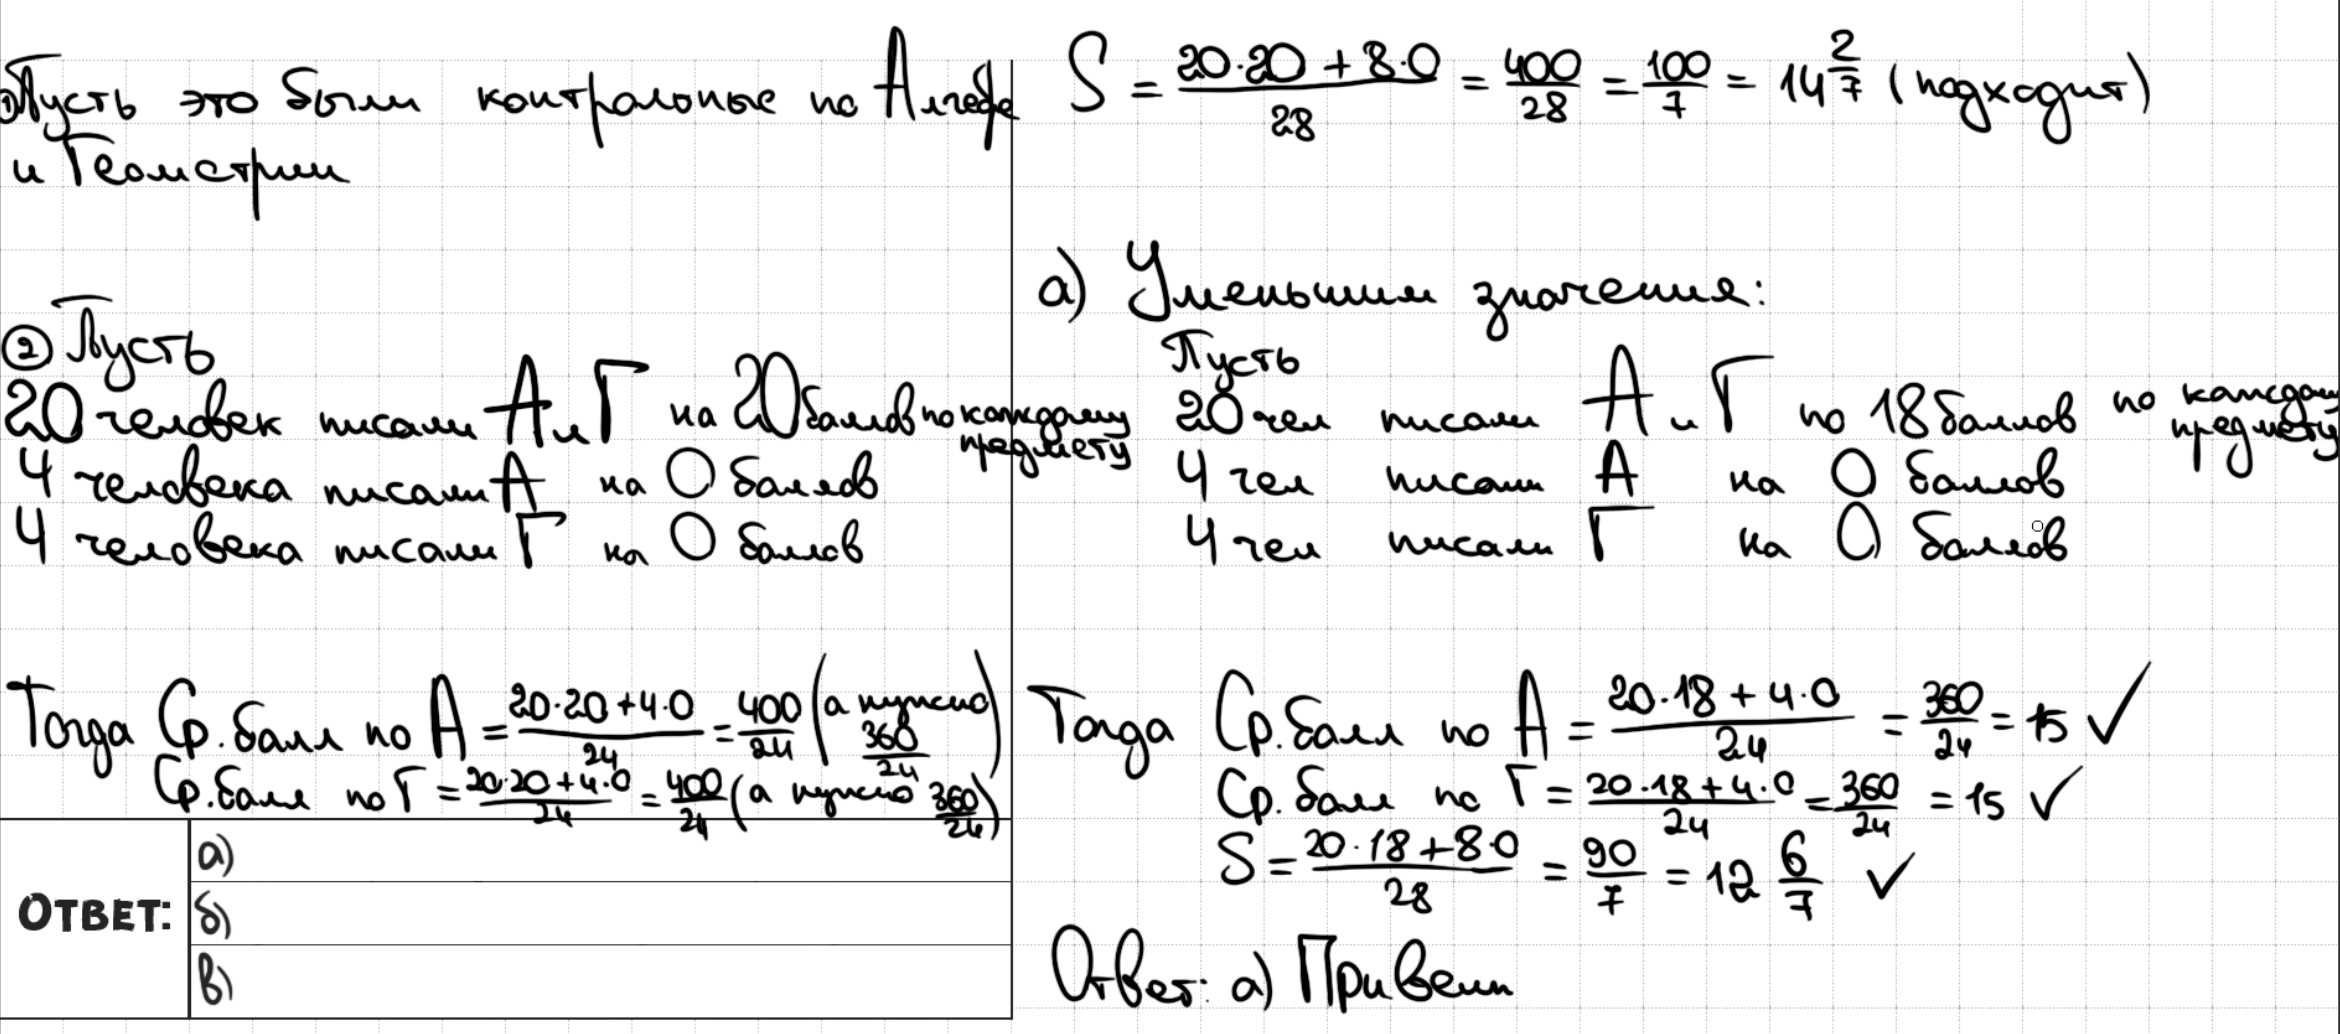 ① Пусть это были контрольные по Алгебре
и Геометрии
② Пусть
20 человек писали А и Г на 20 баллов по каждому
предмету
4 человека писали А на 0 баллов
4 человека писали Г на 0 баллов
Тогда Ср. балл по А = (20·20+4·0)/24 = 400/24 (а нужно 360/24)
Ср. балл по Г = (20·20+4·0)/24 = 400/24 (а нужно 360/24)
ОТВЕТ:
а)
б)
в)
S = (20·20+8·0)/28 = 400/28 = 100/7 = 14 2/7 (подходит)
а) Уменьшим значения:
Пусть
20 чел писали А и Г по 18 баллов по каждому
предмету
4 чел писали А на 0 баллов
4 чел писали Г на 0 баллов
Тогда Ср. балл по А = (20·18+4·0)/24 = 360/24 = 15 ✓
Ср. балл по Г = (20·18+4·0)/24 = 360/24 = 15 ✓
S = (20·18+8·0)/28 = 90/7 = 12 6/7 ✓
Ответ: а) Привели